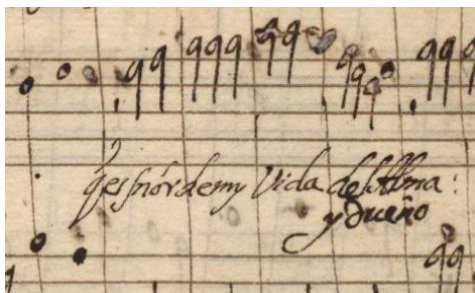 q̃ es sñor de my Vida del Alma:
y dueño